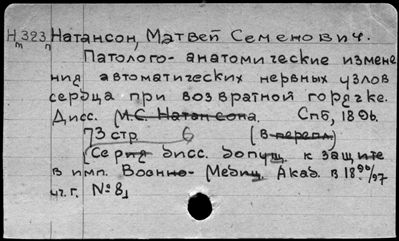 Нт 323п Натансон, Матвей Семенович.
Патолого-анатомические измене
ния автоматических нервных узлов
сердца при возвратной горячке.
Дисс. М.С. Натансона. Спб, 1896.
73 стр. 6 (в перепл)
(Серия дисс. допущ. к защите
в имп. Военно-Медиц. Акад. в 1896/97
уч. г. № 8)